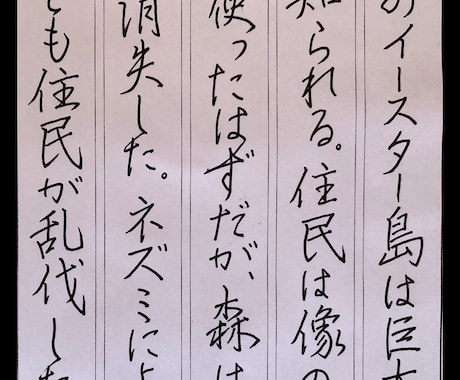 のイースター島は巨
知られる。住民は像の
使ったはずだが、森は
消失した。ネズミによ
も住民が乱伐した